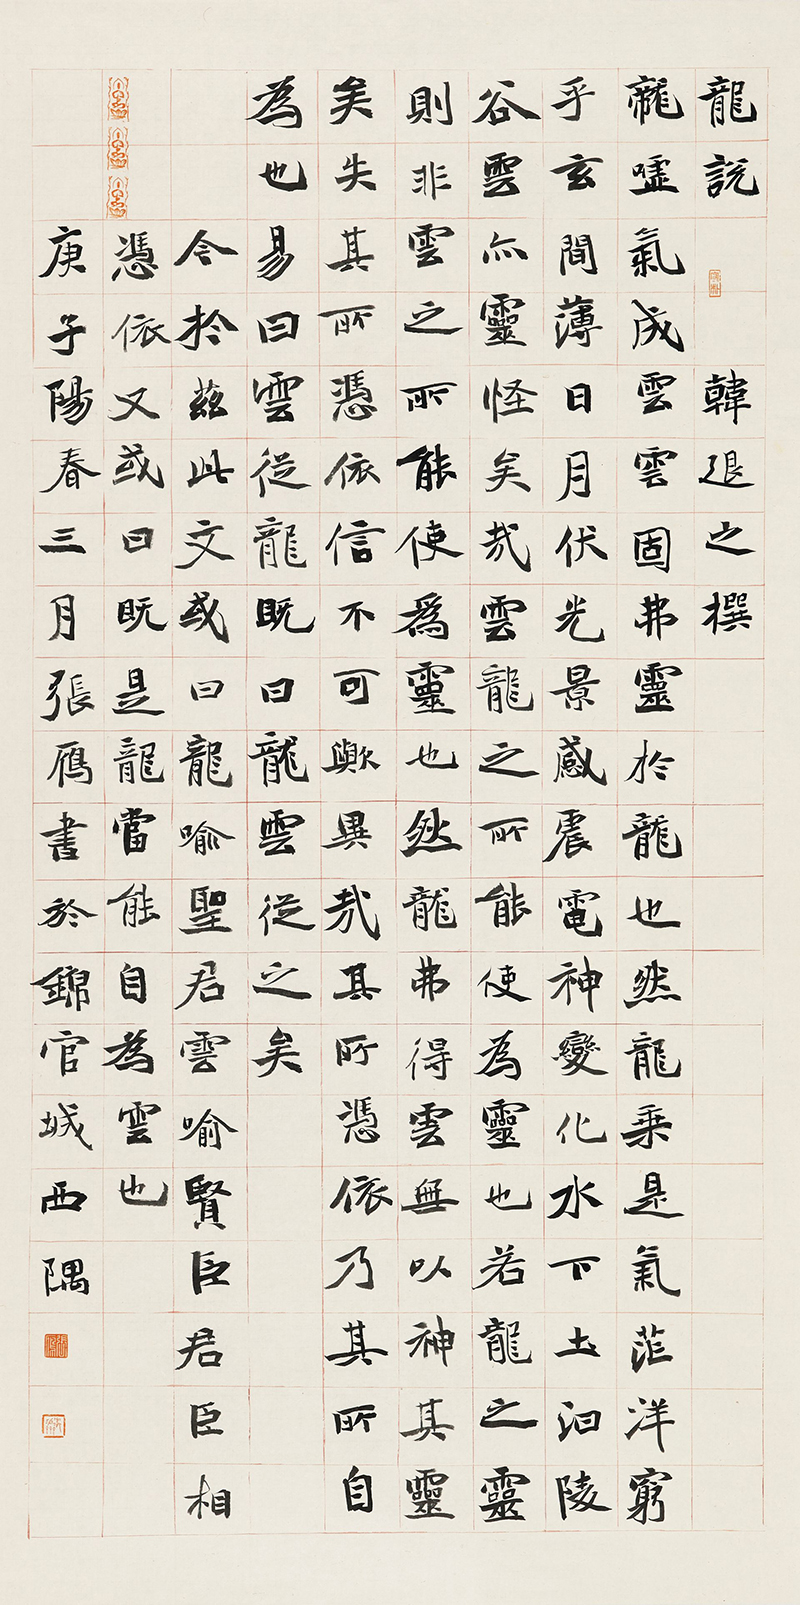 龍說 韓退之撰
龍噓氣成雲雲固弗靈於龍也然龍乗是氣茫洋窮
乎玄間薄日月伏光景感震電神變化水下土汩陵
谷雲亦靈怪矣哉雲龍之所能使為靈也若龍之靈
則非雲之所能使爲靈也然龍弗得雲無以神其靈
矣失其所憑依信不可歟異哉其所憑依乃其所自
為也易曰雲從龍既曰龍雲從之矣
今於茲此文或曰龍喻聖君雲喻賢臣君臣相
憑依又或曰既是龍當能自為雲也
庚子陽春三月張雁書於錦官城西隅